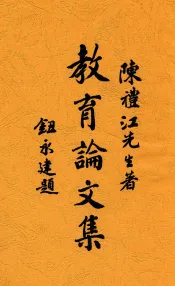 陳禮江先生著
教育論文集
鈕永建題